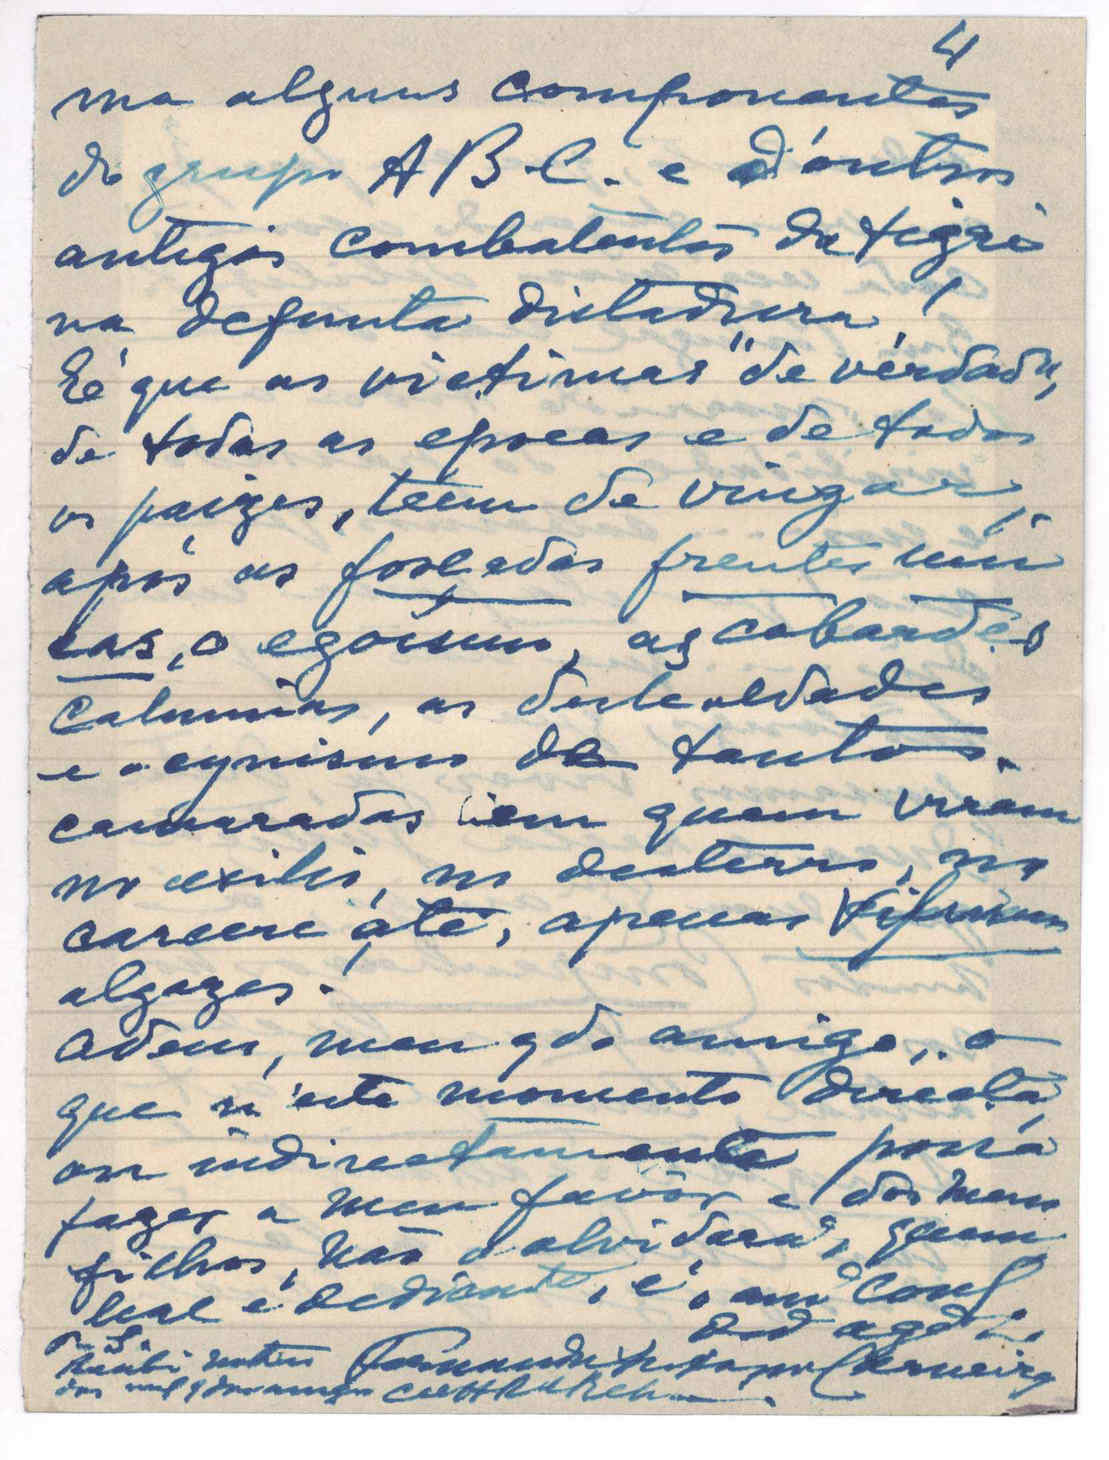 4
ma alguns componentes
do grupo A B.C. e d'outros
antigos combatentes da tigri
na defunta dictadura!
É que as victimas "de verdade",
de todas as epocas e de todos
os paizes, teem de vingar,
após as frentes uni
cas, o egoismo, as cobardes
calumnias, as deslealdades
e o cynismo de tantos
camaradas em quem viram
no exilio, no desterro, no
carcere até, apenas
algozes!
Adeus, meu qdo amigo, o
que n'este momento directa
ou indirectamente possa
fazer a meu favôr e dos meus
filhos, não o olvidará, quem
leal e, é, am
Recebi
Carneiro